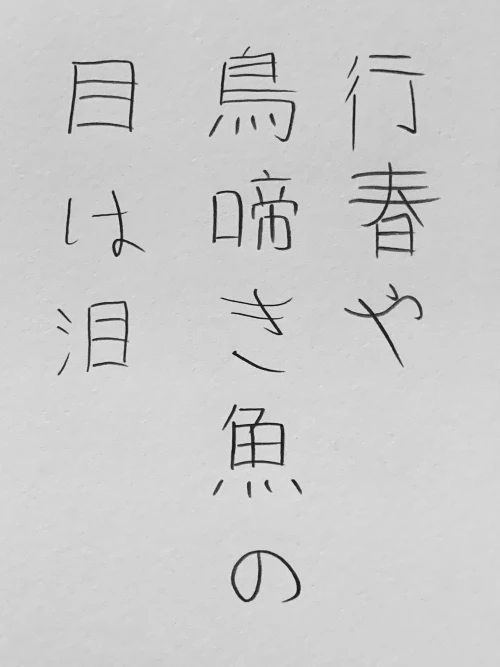 行春や
鳥啼き魚の
目は泪